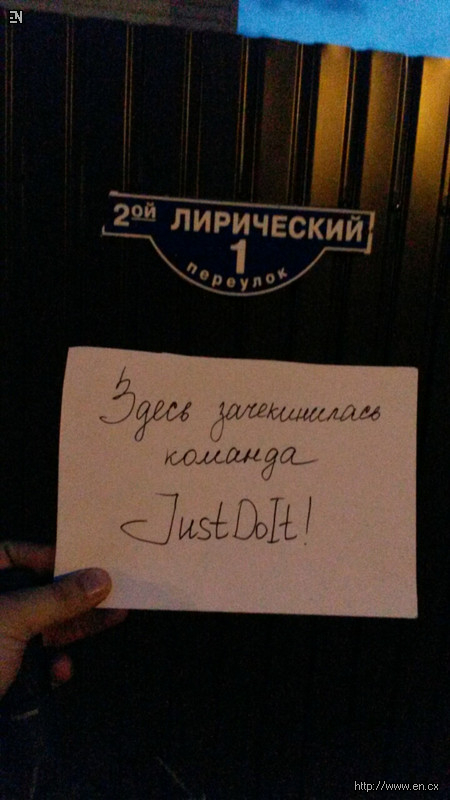 EN
2ой ЛИРИЧЕСКИЙ
1
переулок
Здесь зачекинилась
команда
JustDoIt!
http://www.en.cx